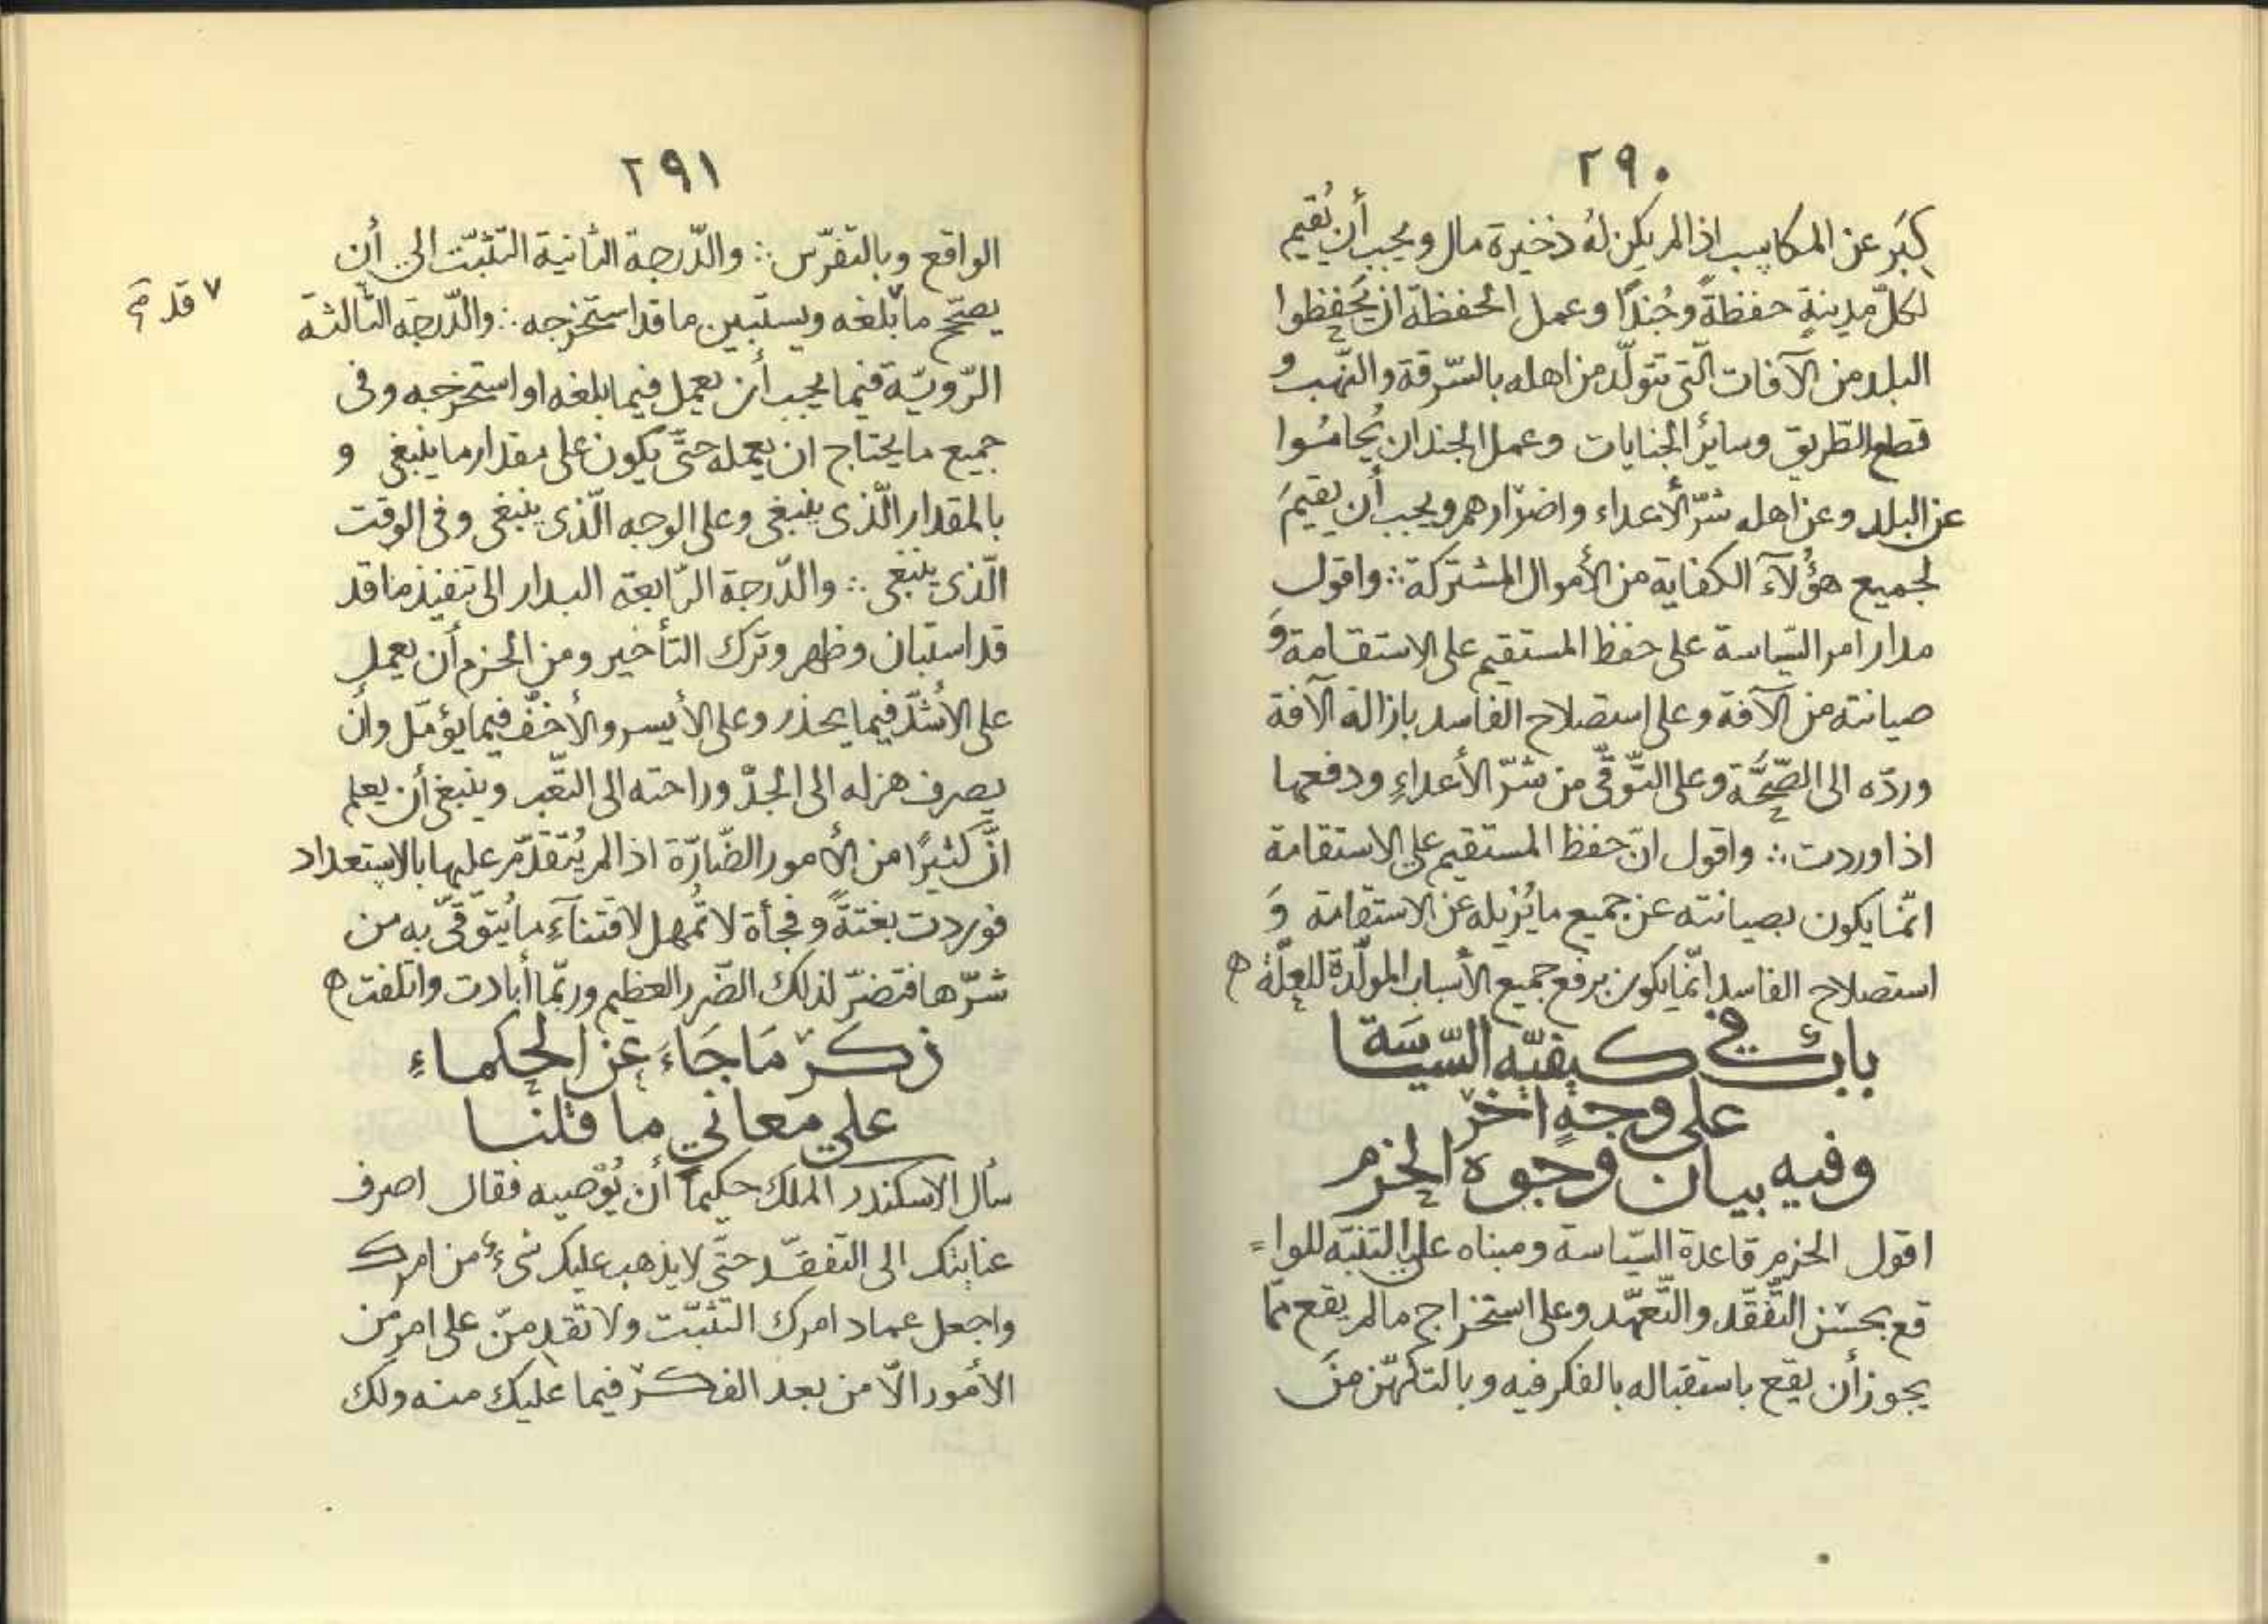 ٢٩٠
كِبَر عن المكاسب اذا لم يكن لهُ ذخيرة مال ويجب أن يُقيم
لكلّ مدينةٍ حفظةً وجُندًا وعمل الحفظة ان يَحفِظوا
البلد من الآفات الّتى تتولّد من اهله بالسّرقة والنّهب و
قطع الطّريق وسايرُ الجنايات وعمل الجند ان يُحامُوا
عن البلد وعن اهله شرّ الأعداء واضرّارهم ويجب أن يقيمَ
لجميع هؤُلآءَ الكفاية من الأموال المشتركة ∴ واقول
مدار امر السّياسة على حفظ المستقيم على الاستقامة وَ
صيانته من الآفة وعلى استصلاح الفاسد بازالة الآفة
وردّه الى الصّحُّة وعلى التّوقّى من شرّ الأعداءِ ودفعها
اذا وردت ∴ واقول انّ حفظ المستقيم على الاستقامة
انّما يكون بصيانته عن جميع ما يُزيله عن الاستقامة وَ
استصلاح الفاسد انّما يكون برفع جميع الأسباب المولّدة للعلّة ه
بابٌ في كيفيّه السّيَاسَة
على وجهٍ اخَر
وفيه بيان وجوه الحزم
اقول الحزم قاعدة السّياسة ومبناه على التنبّه للوا=
قع بحسْن التّفقّد والتّعهّد وعلى استخراج ما لم يقع ممّا
يجوز أن يقع باستقباله بالفكر فيه وبالتكهّن منَ
٢٩١
الواقع وبالتفرّس ∴ والدّرجة الثانية التثبّت الى أن
يصحّ ما ٧ بلغه ويستبين ما قد استخرجه ∴ والدّرجة الثّالثة
٧ قد
الرّويّة فيما يجب أن يعمل فيما بلغه او استخرجه وفى
جميع ما يحتاج ان يعمله حتّى يكون على مقدار ما ينبغى و
بالمقدار الّذى ينبغى وعلى الوجه الّذى ينبغى وفى الوقت
الّذى ينبغى ∴ والدّرجة الرّابعة البدار الى تنفيذ ما قد
قد استبان وظهر وترك التأخير ومن الحزم أن يعمل
على الأشدّ فيما يحذر وعلى الأيسر والأخفّ فيما يؤمّل وأن
يصرف هزله الى الجدّ وراحته الى التعّب وينبغى أن يعلم
انّ كثيرًا من الأمور الضّارّة اذا لم يُتقدّم عليها بالاستعداد
فوردت بغتةً وفجأة لا تُمهل لاقتنآءِ ما يُتوقّى به من
شرّها فتضرّ لذلك الضّرر العظيم وربّما أبادت واتلفت ه
ذكر مَا جَاءَ عن الحكماءِ
على معاني ما قلنا
سأل الاسكندر الملك حكيماً أن يُوْصيه فقال اصرف
عنايتك الى التفقّد حتّى لا يذهب عليك شىءٌ من امرك
واجعل عماد امرك التثبّت ولا تقدِمنّ على امر من
الأمور الّا من بعد الفكر فيما عليك منه ولك